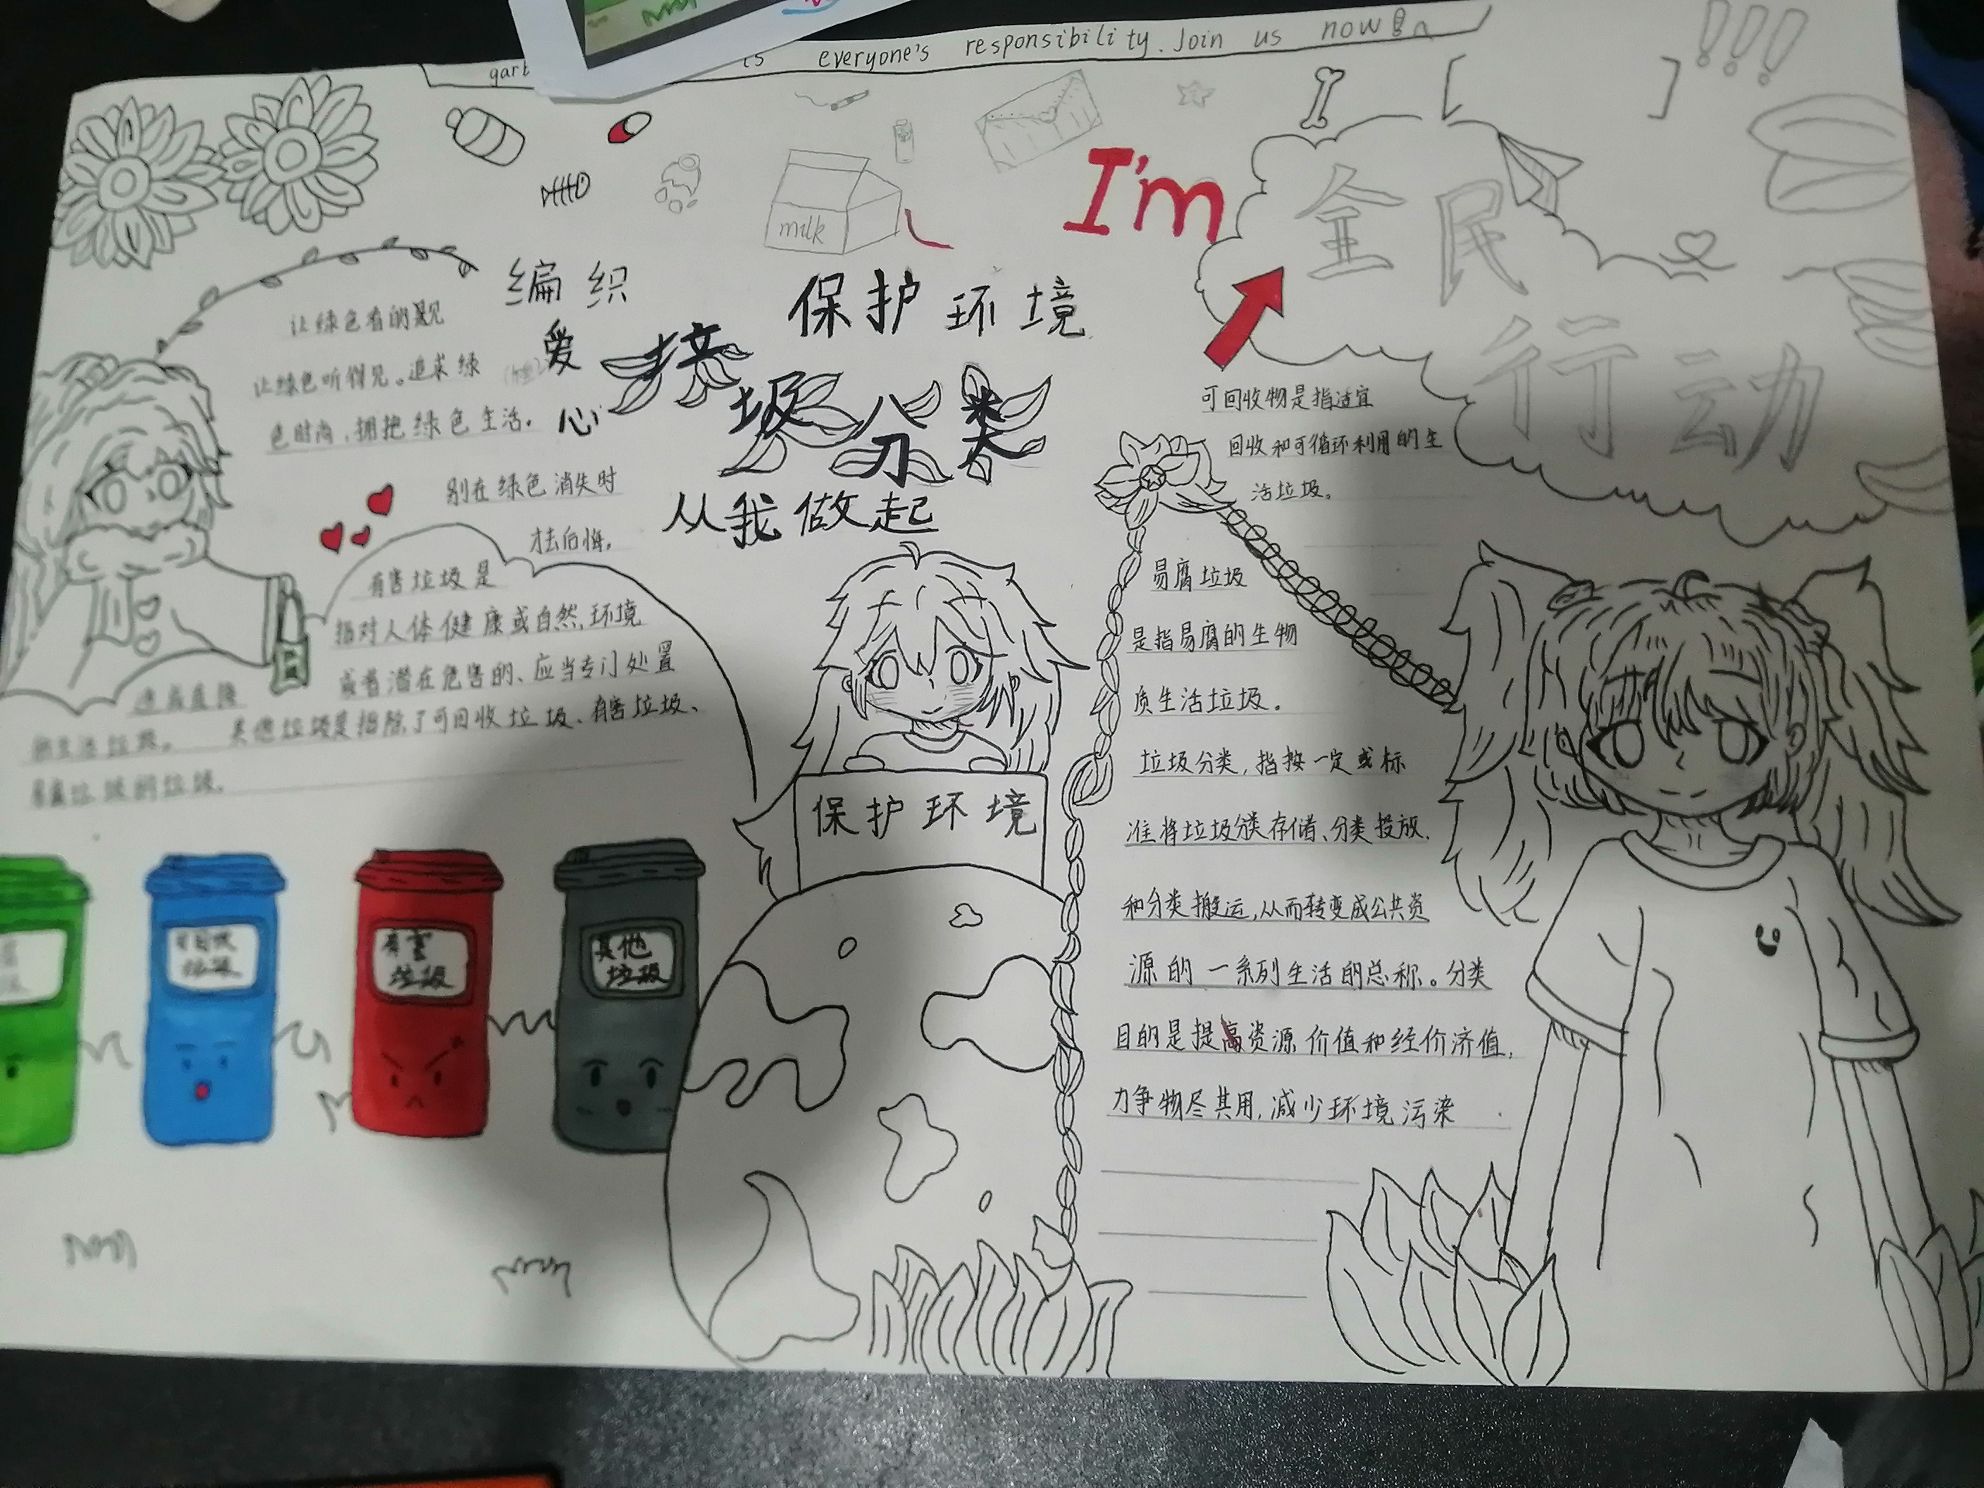 everyone's responsibility. Join us now
milk
I'm
全民
行动
编织
爱
心
保护环境
垃圾分类
从我做起
让绿色看的见
让绿色听得见。追求绿
色时尚,拥抱绿色生活。
别在绿色消失时
才去后悔。
有害垃圾是
指对人体健康或自然,环境
或者潜在危害的、应当专门处置
的生活垃圾。 其他垃圾是指除了可回收垃圾、有害垃圾、
易腐垃圾的垃圾。
可回收
垃圾
有害
垃圾
其他
垃圾
保护环境
可回收物是指适宜
回收和可循环利用的生
活垃圾。
易腐垃圾
是指易腐的生物
质生活垃圾。
垃圾分类,指按一定或标
准将垃圾分类存储、分类投放.
和分类搬运,从而转变成公共资
源的一系列生活的总称。分类
目的是提高资源价值和经价济值,
力争物尽其用,减少环境污染